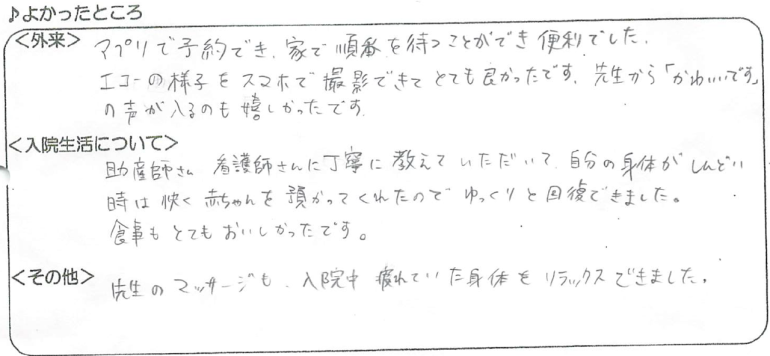 ♪よかったところ
<外来> アプリで予約でき、家で順番を待つことができ便利でした。
エコーの様子をスマホで撮影できてとても良かったです。先生から「かわいいです」
の声が入るのも嬉しかったです。
<入院生活について>
助産師さん 看護師さんに丁寧に教えていただいて、自分の身体がしんどい
時は快く赤ちゃんを預かってくれたのでゆっくりと回復できました。
食事もとてもおいしかったです。
<その他> 先生のマッサージも、入院中疲れていた身体をリラックスできました。